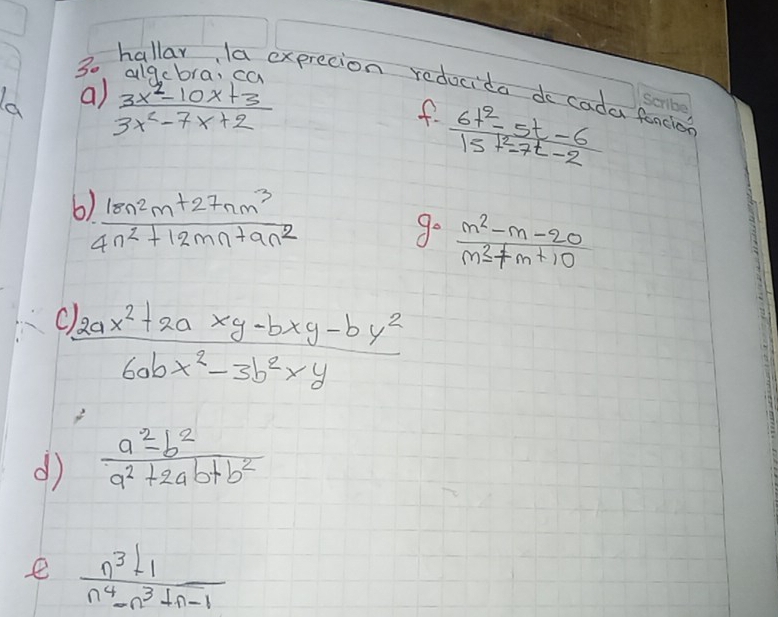 la
3. hallar la exprecion reducida de cada función
algebraica
Scribe
a) 3x²-10x+3
3x²-7x+2
f. 6t²-5t-6
15t²-7t-2
b) 18n²m+27nm³
4n²+12mn+9n²
g. m²-m-20
m²-7m+10
c) 2ax²+2a xy-bxy-by²
6abx²-3b²xy
d) a²-b²
a²+2ab+b²
e n³+1
n⁴-n³+n-1